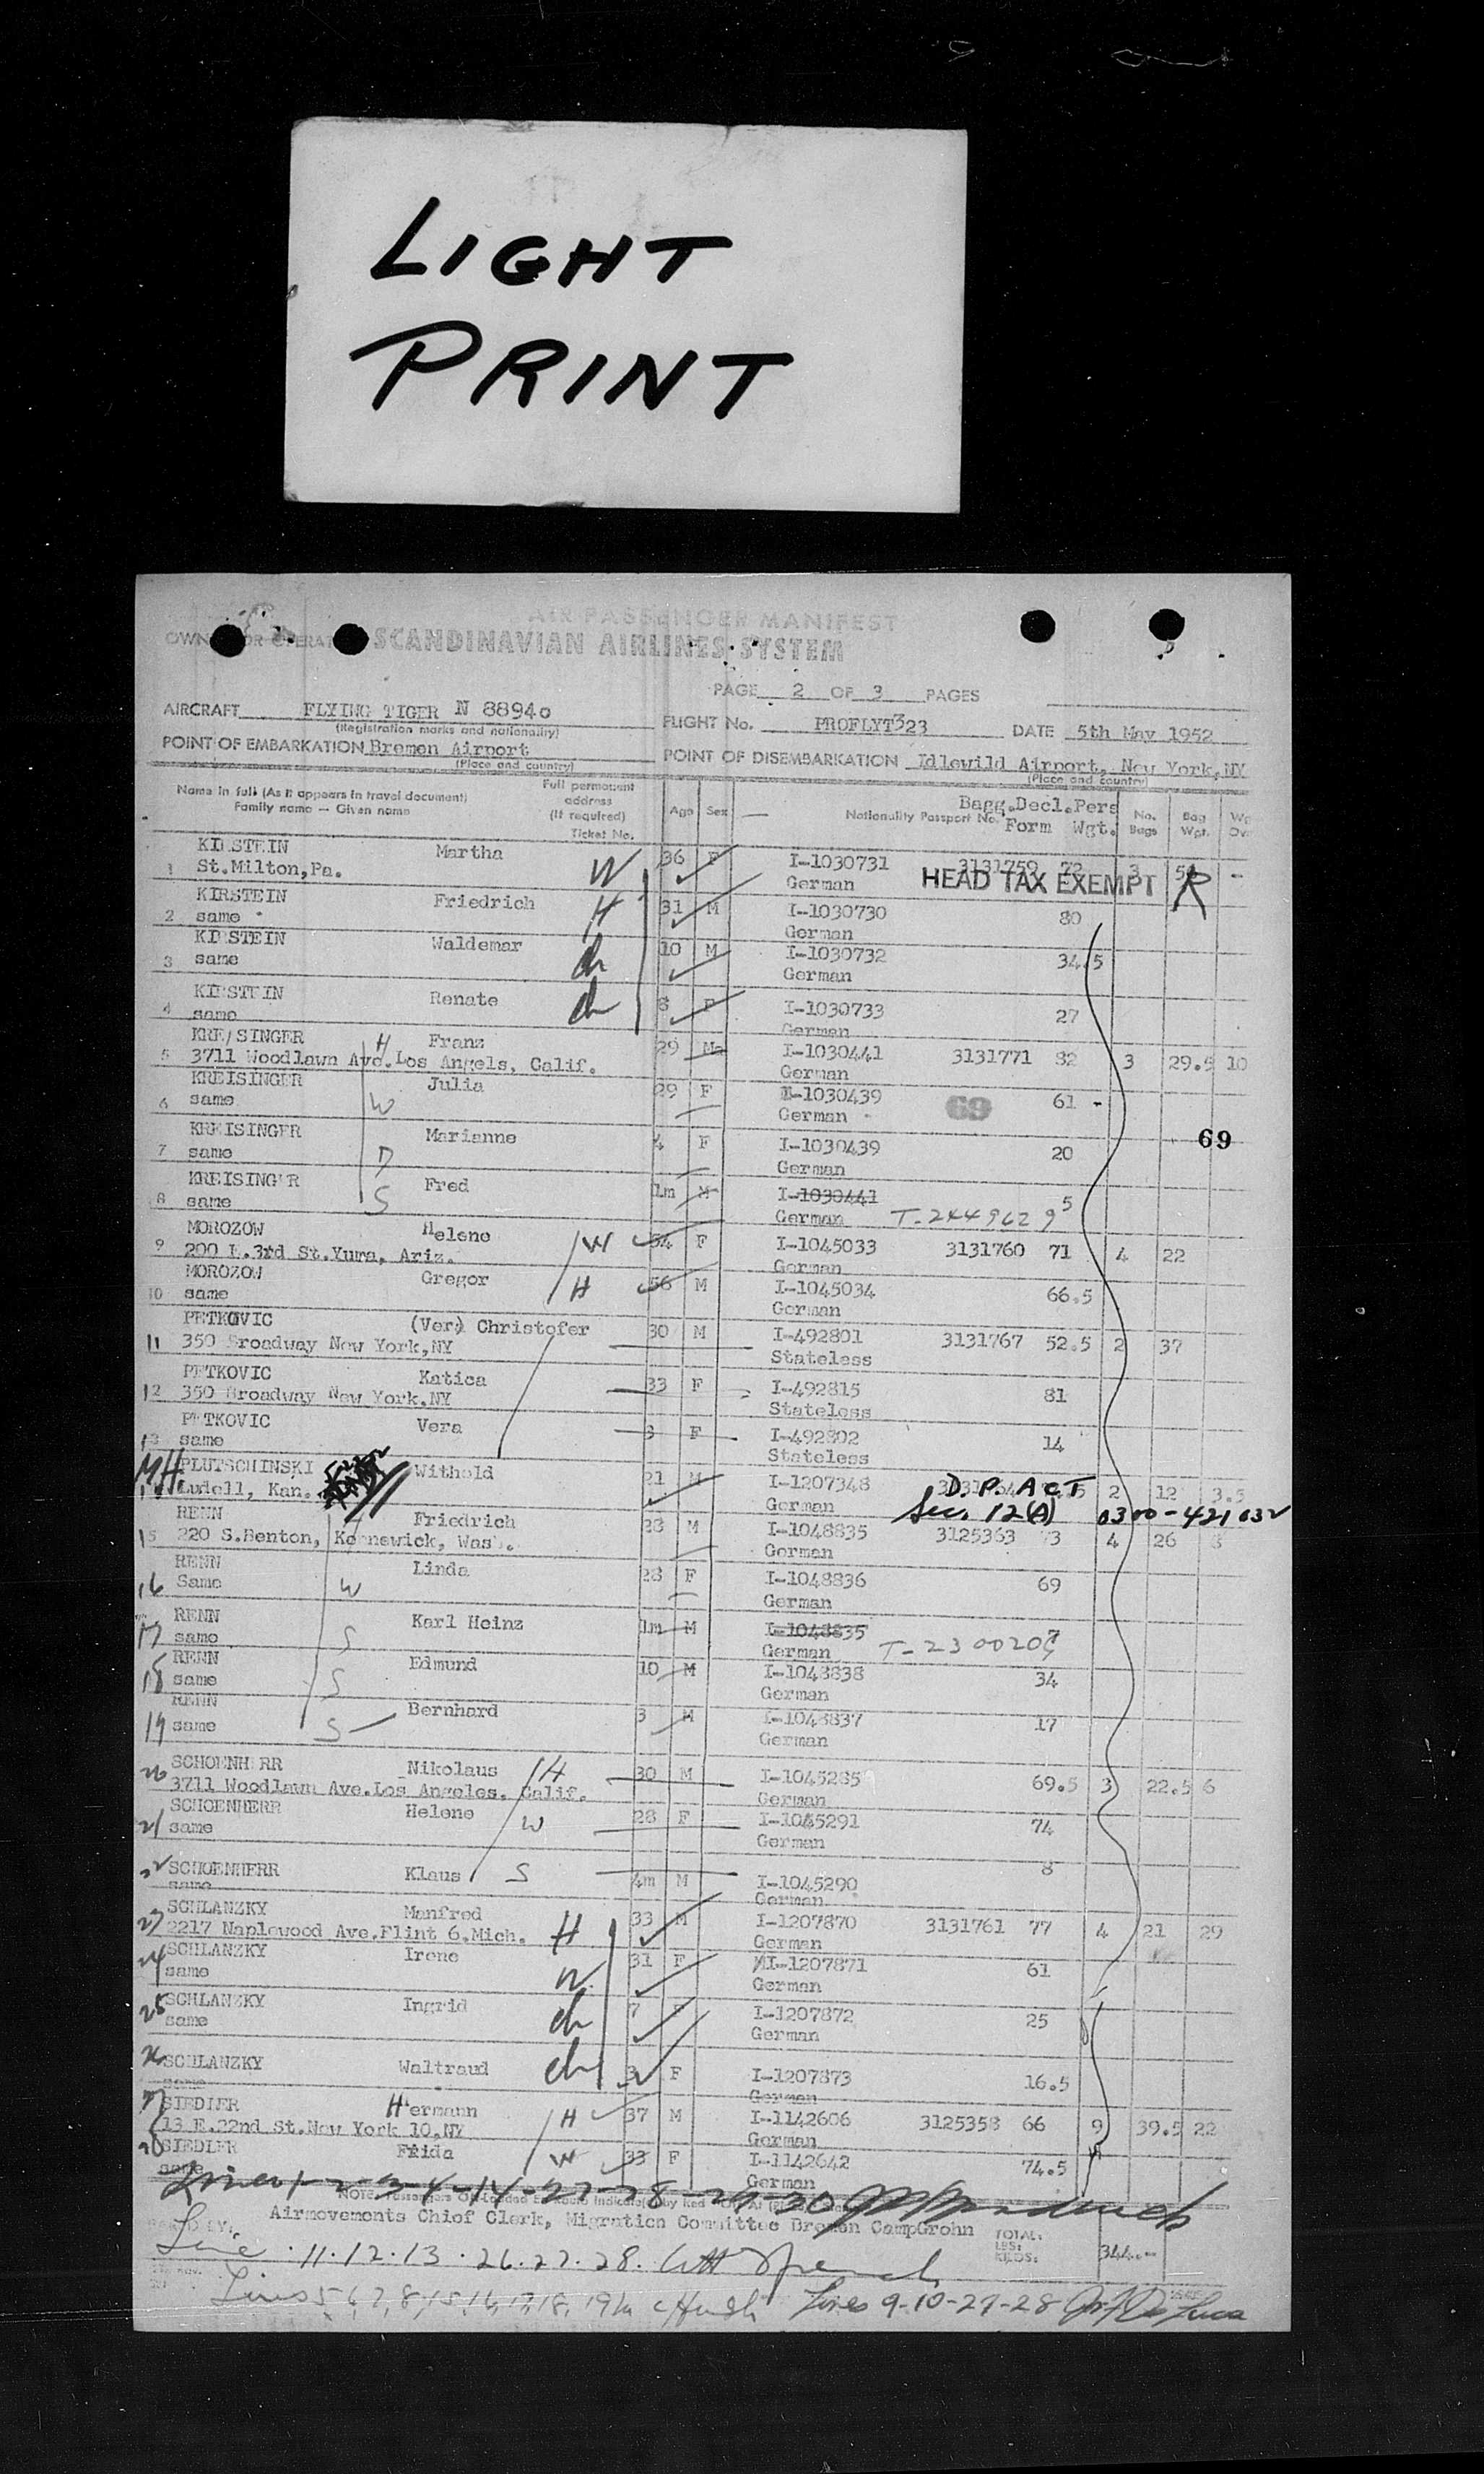 LIGHT
PRINT
AIR PASSENGER MANIFEST
SCANDINAVIAN AIRLINES SYSTEM
PAGE 2 OF 3 PAGES
AIRCRAFT FLYING TIGER N 88940 FLIGHT No. PROFLYT323 DATE 5th May 1952
(Registration marks and nationality)
POINT OF EMBARKATION Bremen Airport POINT OF DISEMBARKATION Idlewild Airport, New York, NY
(Place and country) (Place and country)
Name in full (As it appears in travel document) Full permanent address (If required) Age Sex Nationality Passport No. Bagg.Decl. Pers No. Bag
Family name — Given name Ticket No. Form Wgt. Bags Wgt.
KIRSTEIN Martha W 36 F I-1030731 3131759 72 3
1 St.Milton,Pa. German HEAD TAX EXEMPT R
KIRSTEIN Friedrich H 31 M I-1030730 80
2 same German
KIRSTEIN Waldemar ch 10 M I-1030732 34.5
3 same German
KIRSTEIN Renate ch 8 F I-1030733 27
4 same German
KREISINGER H Franz 29 M I-1030441 3131771 82 3 29.5 10
5 3711 Woodlawn Ave.Los Angels, Calif. German
KREISINGER Julia 29 F I-1030439 69 61 -
6 same W German
KREISINGER Marianne 4 F I-1030439 20 69
7 same D German
KREISINGER Fred 1m M I-1030441 5
8 same S German T-244962 9
MOROZOW Helene W 54 F I-1045033 3131760 71 4 22
9 200 E.3rd St.Yuma, Ariz. German
MOROZOW Gregor H 56 M I-1045034 66.5
10 same German
PETKOVIC (Ver.) Christofer 30 M I-492801 3131767 52.5 2 37
11 350 Broadway New York,NY Stateless
PETKOVIC Katica 33 F I-492815 81
12 350 Broadway New York.NY Stateless
PETKOVIC Vera 3 F I-492802 14
13 same Stateless
PLUTSCHINSKI Withold 21 M I-1207348 D.P. ACT 2 12 3.5
Ludell, Kan. German Sec. 12(A) 0300-421032
RENN Friedrich 28 M I-1048835 3125363 73 4 26
15 220 S.Benton, Kennewick, Wash. German
RENN Linda 28 F I-1048836 69
16 Same W German
RENN Karl Heinz 1m M I-1048835 7
17 same S German T-230020
RENN Edmund 10 M I-1048838 34
18 same S German
RENN Bernhard 3 M I-1048837 17
19 same S German
SCHOENHERR Nikolaus H 30 M I-1045285 69.5 3 22.5 6
20 3711 Woodlawn Ave.Los Angeles. Calif. German
SCHOENHERR Helene 28 F I-1045291 74
21 same W German
22 SCHOENHERR Klaus S 4m M I-1045290 8
same German
SCHLANZKY Manfred H 33 M I-1207870 3131761 77 4 21 29
23 2217 Maplewood Ave.Flint 6.Mich. German
SCHLANZKY Irene W 31 F I-1207871 61
24 same German
25 SCHLANZKY Ingrid ch 7 F I-1207872 25
same German
26 SCHLANZKY Waltraud ch 3 F I-1207873 16.5
same German
27 SIEDLER Hermann H 37 M I-1142606 3125358 66 9 39.5 22
13 E.22nd St.New York 10,NY German
28 SIEDLER Frida W 33 F I-1142642 74.5
same German
Lines 1-2-3-4-14-27-28-29-30
Airmovements Chief Clerk, Migration Committee Bremen CampGrohn TOTAL:
LBS:
KILOS: 344.-
Line 11.12.13.26.27.28.
Lines 5 6,7,8,15,16,17,18,19 Lines 9-10-27-28